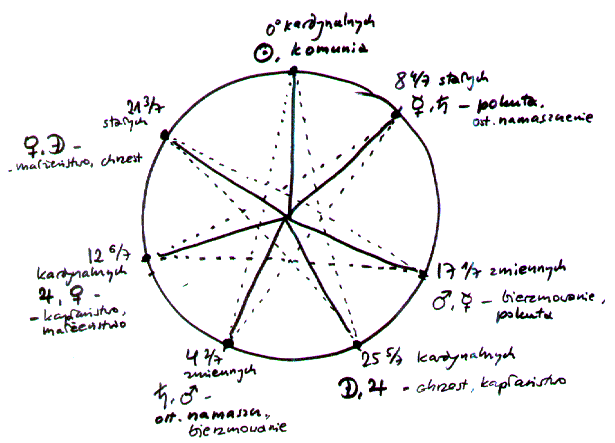 0° kardynalnych
☉, komunia
8 4/7 stałych
☿, ♄ – pokuta,
ost. namaszczenie
17 1/7 zmiennych
♂, ☿ – bierzmowanie,
pokuta
25 5/7 kardynalnych
☽, ♃ – chrzest, kapłaństwo
4 2/7
zmiennych
♄, ♂ –
ost. namaszcz.,
bierzmowanie
12 6/7
kardynalnych
♃, ♀ –
– kapłaństwo,
małżeństwo
21 3/7
stałych
♀, ☽ –
– małżeństwo, chrzest